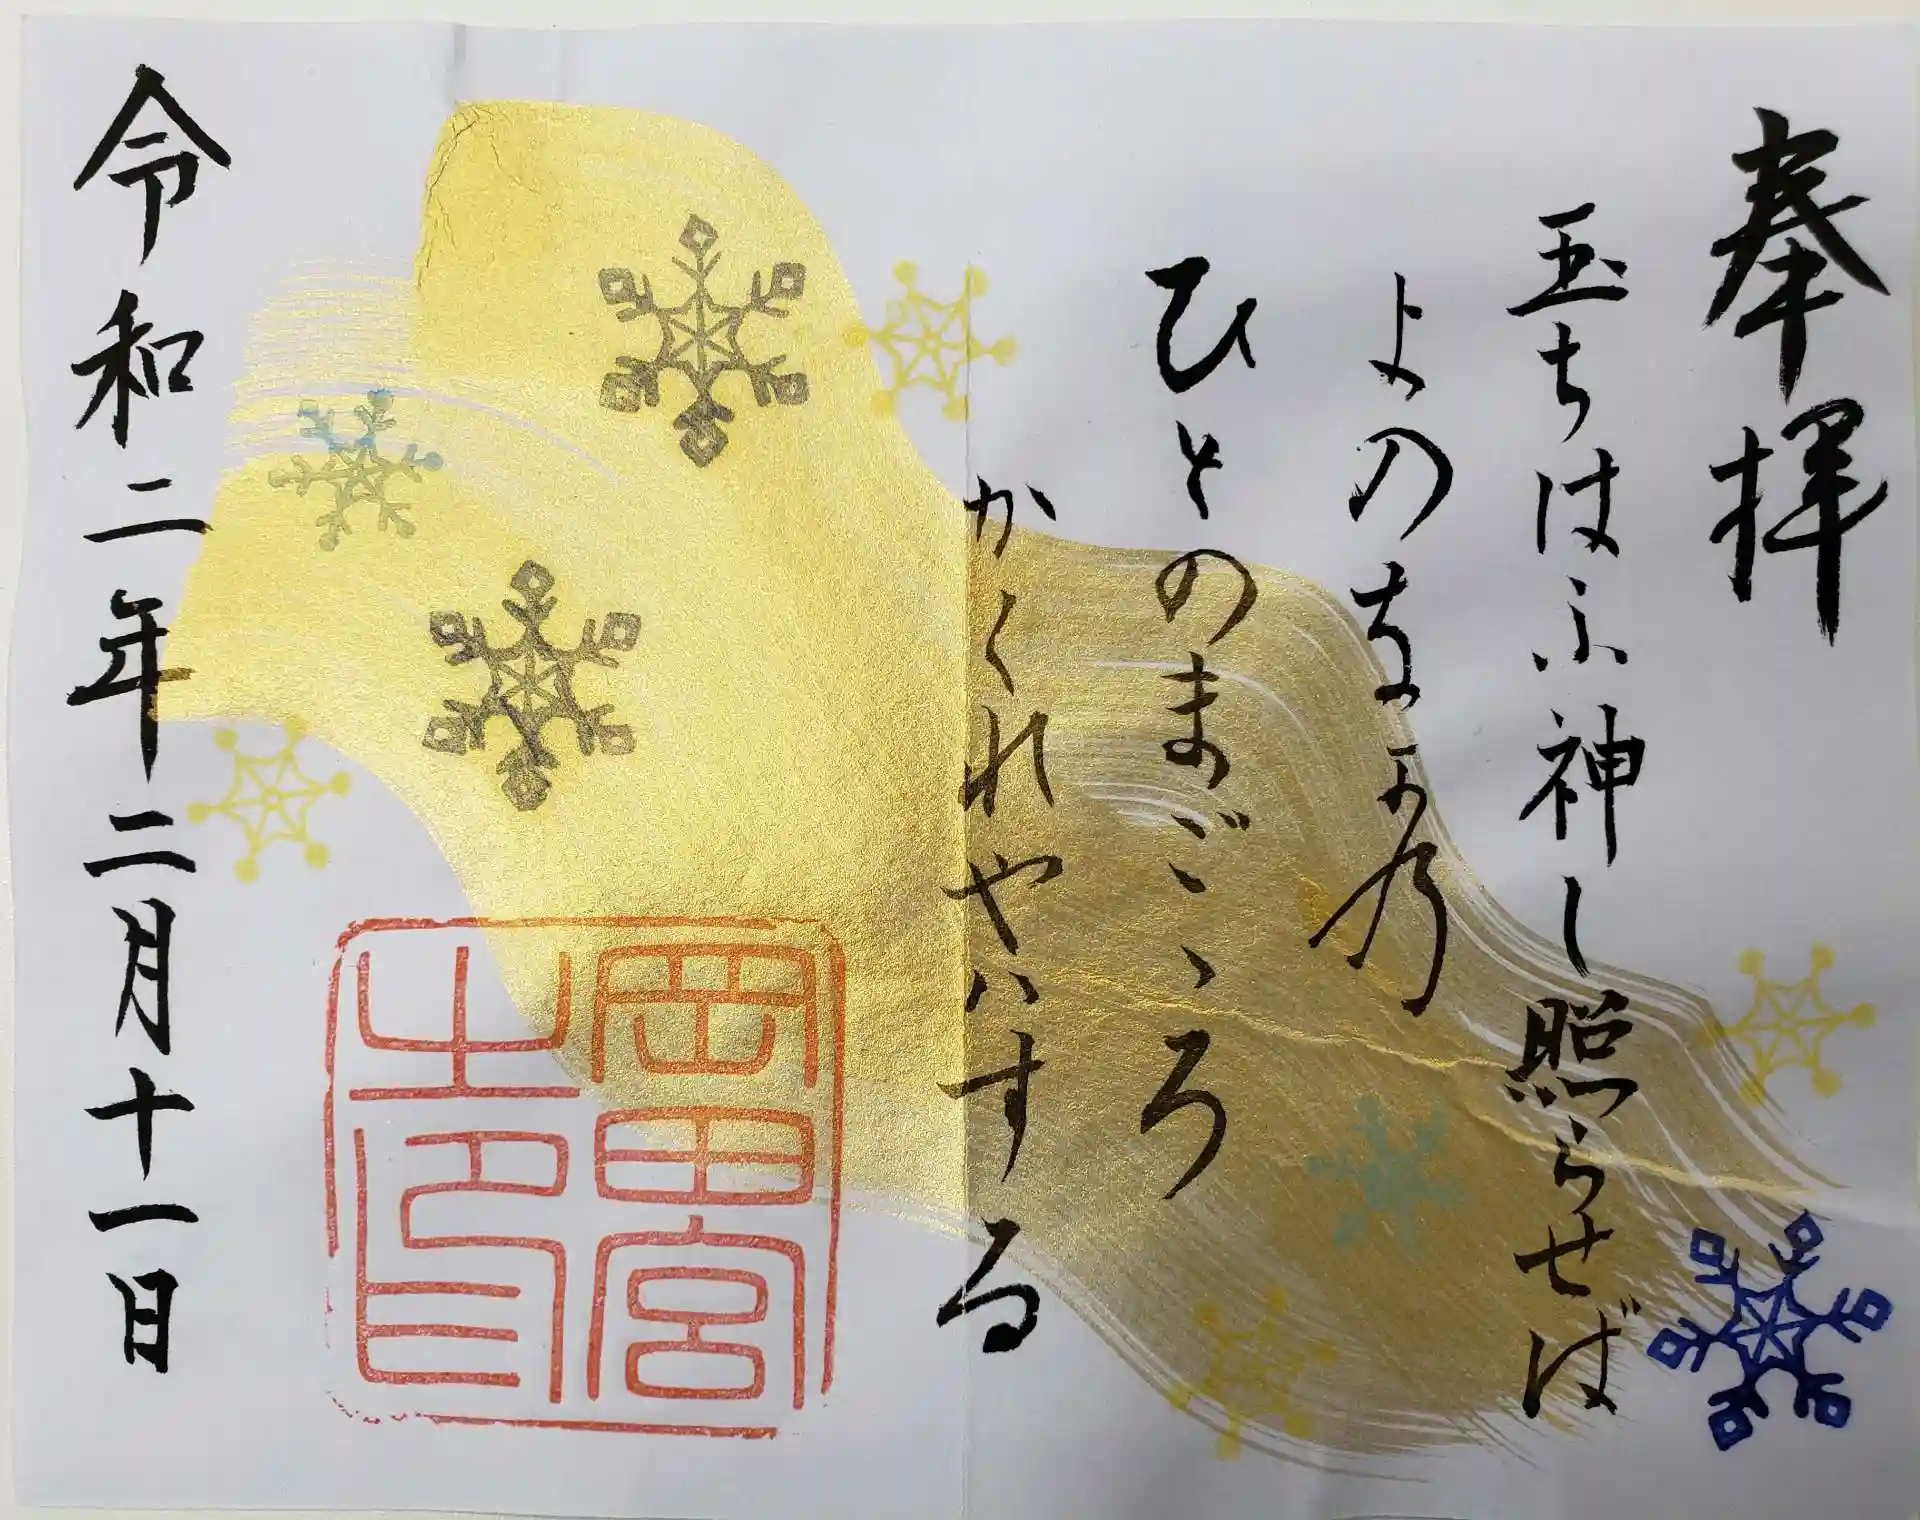 奉拝
玉ちはふ神し照らせば
よのなか乃
ひとのまごゝろ
かくれやハする
岡田宮
之印
令和二年二月十一日